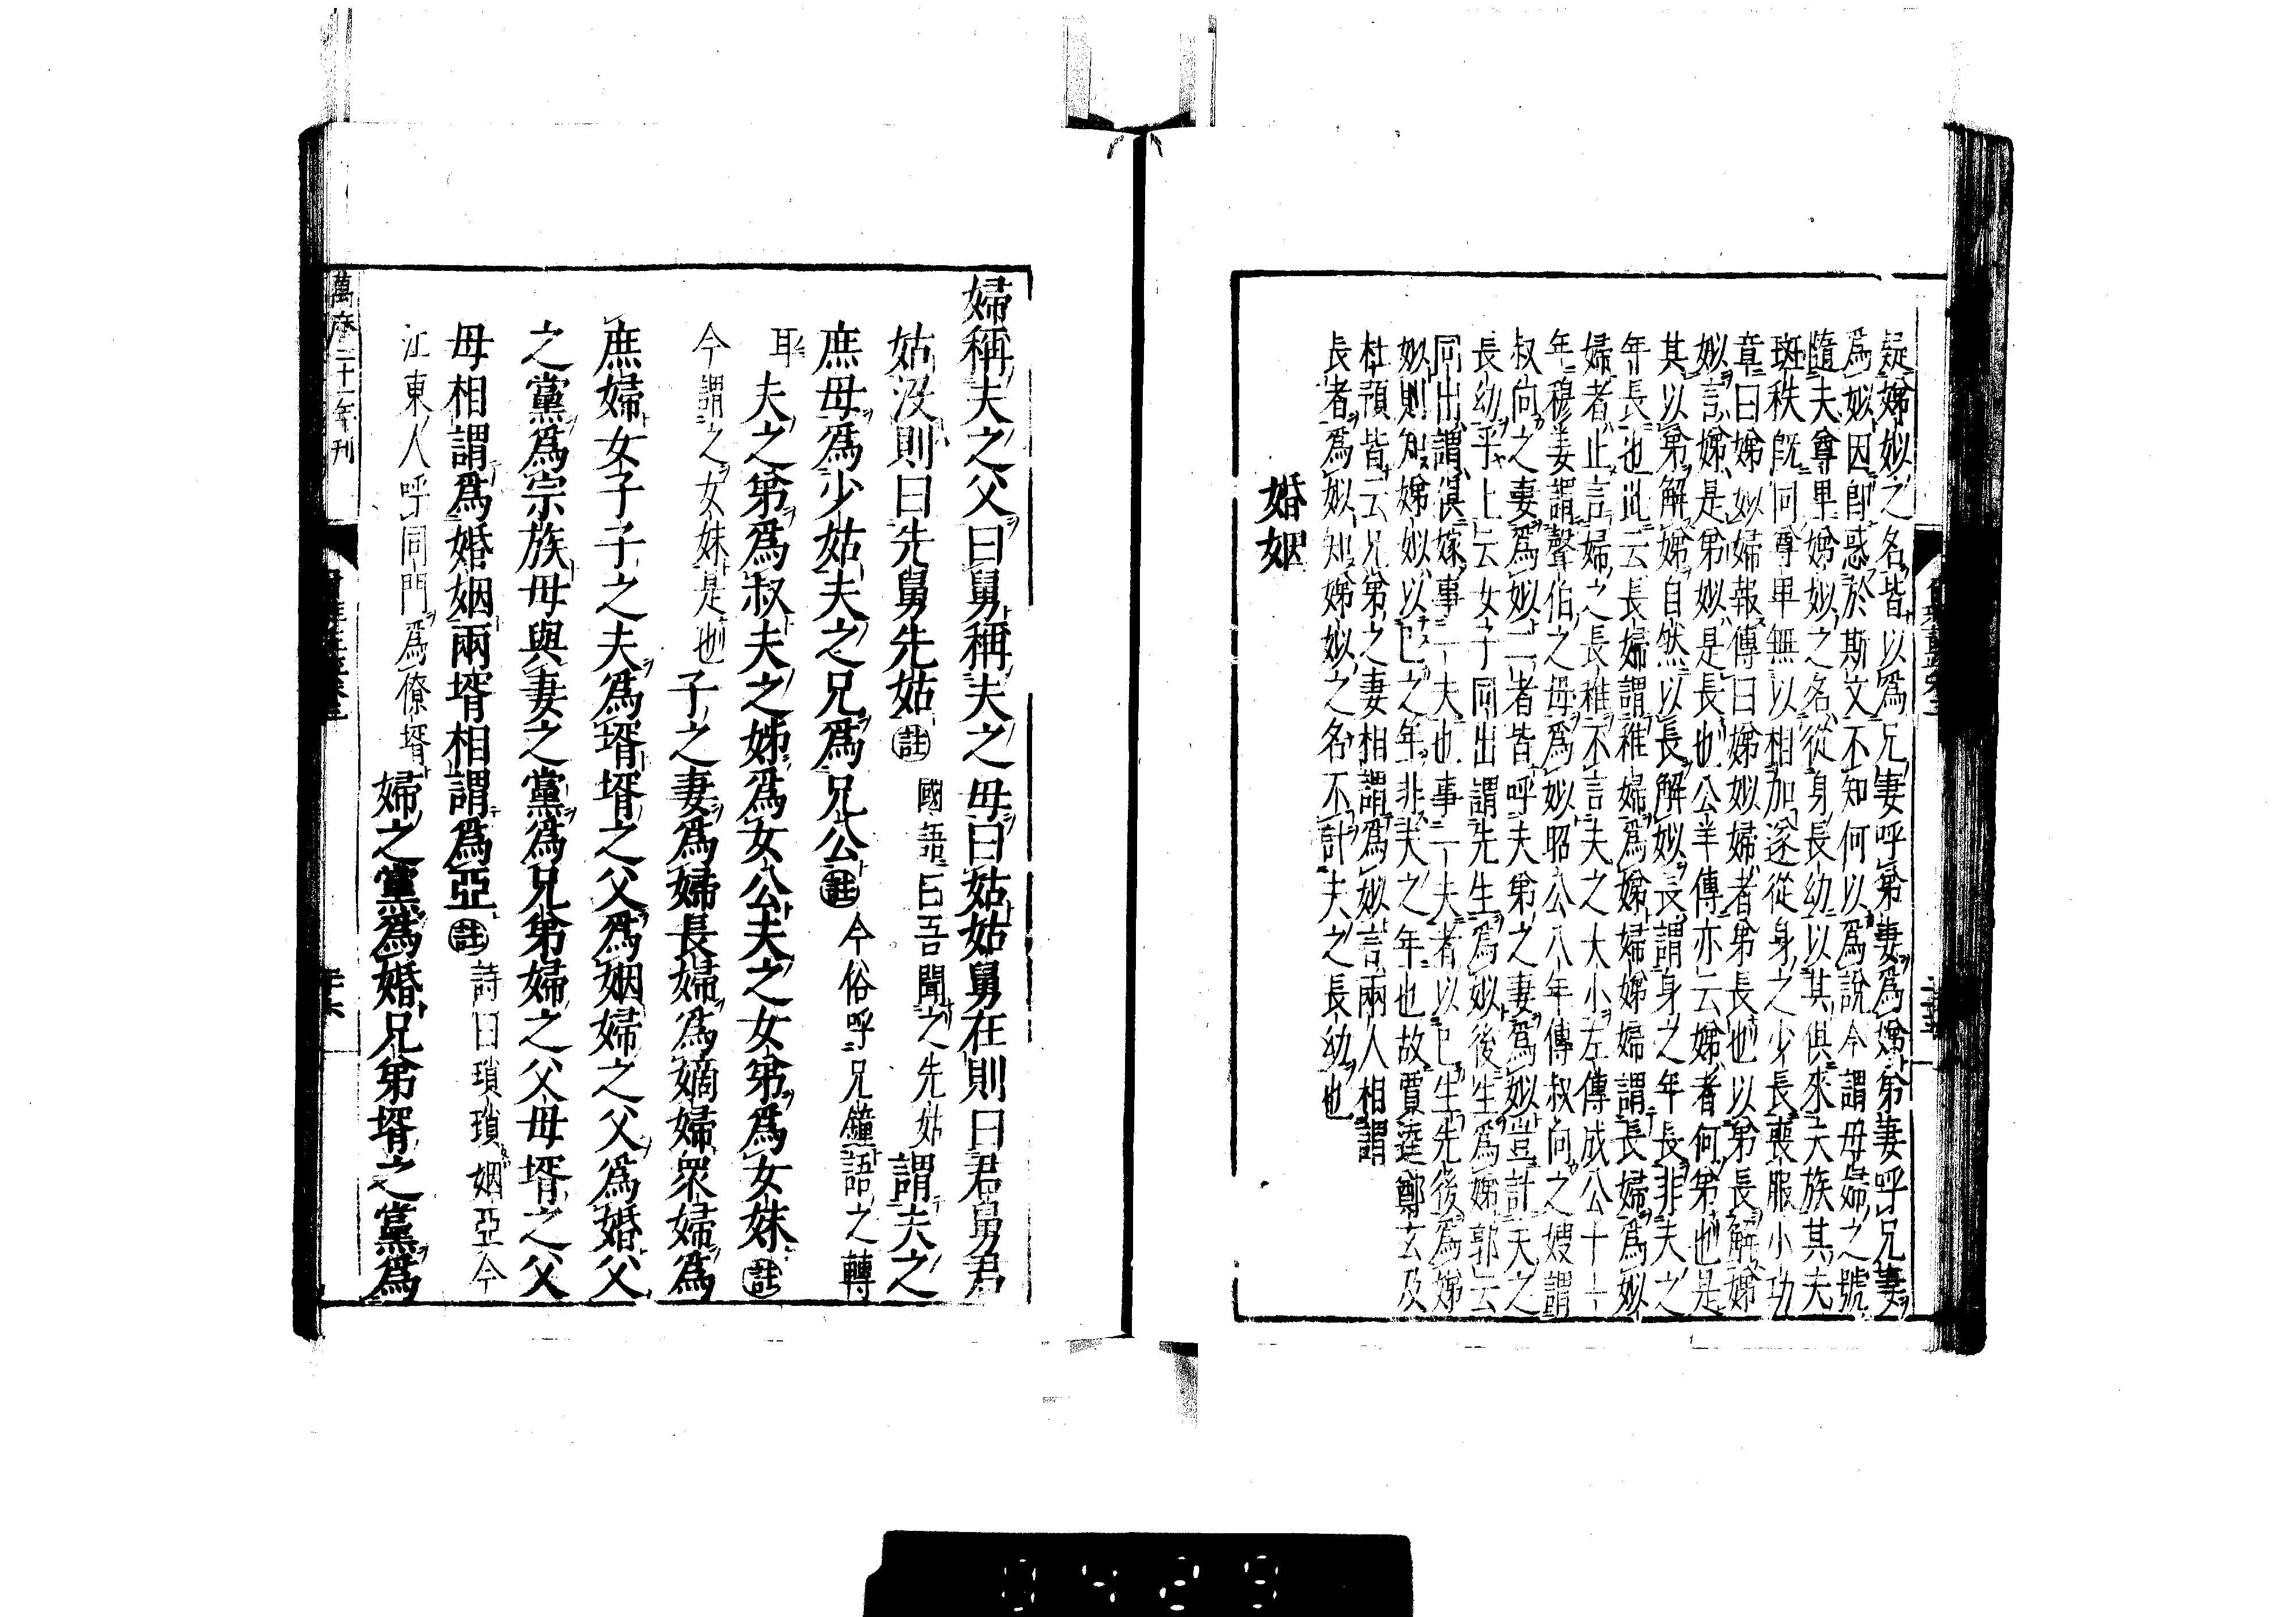 疑娣姒之名皆以爲兄妻呼弟妻爲娣弟妻呼兄妻
爲姒因卽惑於斯文不知何以爲說今謂母婦之號
隨夫尊卑娣姒之名從身長幼以其俱來夫族其夫
班秩旣同尊卑無以相加遂從身之少長喪服小功
章曰娣姒婦報傳曰娣姒婦者弟長也以弟長解娣
姒言娣是弟姒是長也公羊傳亦云娣者何弟也是
其以弟解娣自然以長解姒長謂身之年長非夫之
年長也此云長婦謂稚婦爲娣婦娣婦謂長婦爲姒
婦者止言婦之長稚不言夫之大小左傳成公十一
年穆姜謂聲伯之母爲姒昭公八年傳叔向之嫂謂
叔向之妻爲姒二者皆呼夫弟之妻爲姒豈計夫之
長幼乎上云女子同出謂先生爲姒後生爲娣郭云
同出謂俱嫁事一夫也事一夫者以已生先後爲娣
姒則知娣姒以已之年非夫之年也故賈逵鄭玄及
杜預皆云兄弟之妻相謂爲姒言兩人相謂
長者爲姒知娣姒之名不計夫之長幼也
婚姻
婦稱夫之父曰舅稱夫之母曰姑姑舅在則曰君舅君
姑沒則曰先舅先姑 註 國語曰吾聞之先姑 謂夫之
庶母爲少姑夫之兄爲兄公 註 今俗呼兄鐘語之轉
耳 夫之弟爲叔夫之姊爲女公夫之女弟爲女妹 註
今謂之女妹是也 子之妻爲婦長婦爲嫡婦衆婦爲
庶婦女子子之夫爲壻壻之父爲姻婦之父爲婚父
之黨爲宗族母與妻之黨爲兄弟婦之父母壻之父
母相謂爲婚姻兩壻相謂爲亞 註 詩曰瑣瑣姻亞今
江東人呼同門爲僚壻 婦之黨爲婚兄弟壻之黨爲
萬曆二十一年刊
0429